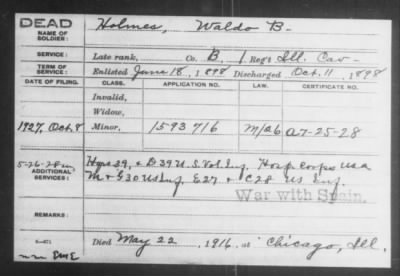 DEAD
NAME OF SOLDIER:
Holmes, Waldo B-
SERVICE:
Late rank, Co. B, 1 Reg't Ill. Cav-
TERM OF SERVICE:
Enlisted June 18, 1898 Discharged Oct. 11, 1898
DATE OF FILING. CLASS. APPLICATION NO. LAW. CERTIFICATE NO.
Invalid,
Widow,
1927, Oct. 8 Minor, 1593 716 a7-25-28
5-26-28
ADDITIONAL SERVICES:
Hqrs 29, & D 39 U.S. Vol. Inf, Hosp Corps USA
M & G 30 US Inf, E 27 & C 28 US Inf.
War with Spain.
REMARKS:
Died May 22, 1916, at Chicago, Ill.